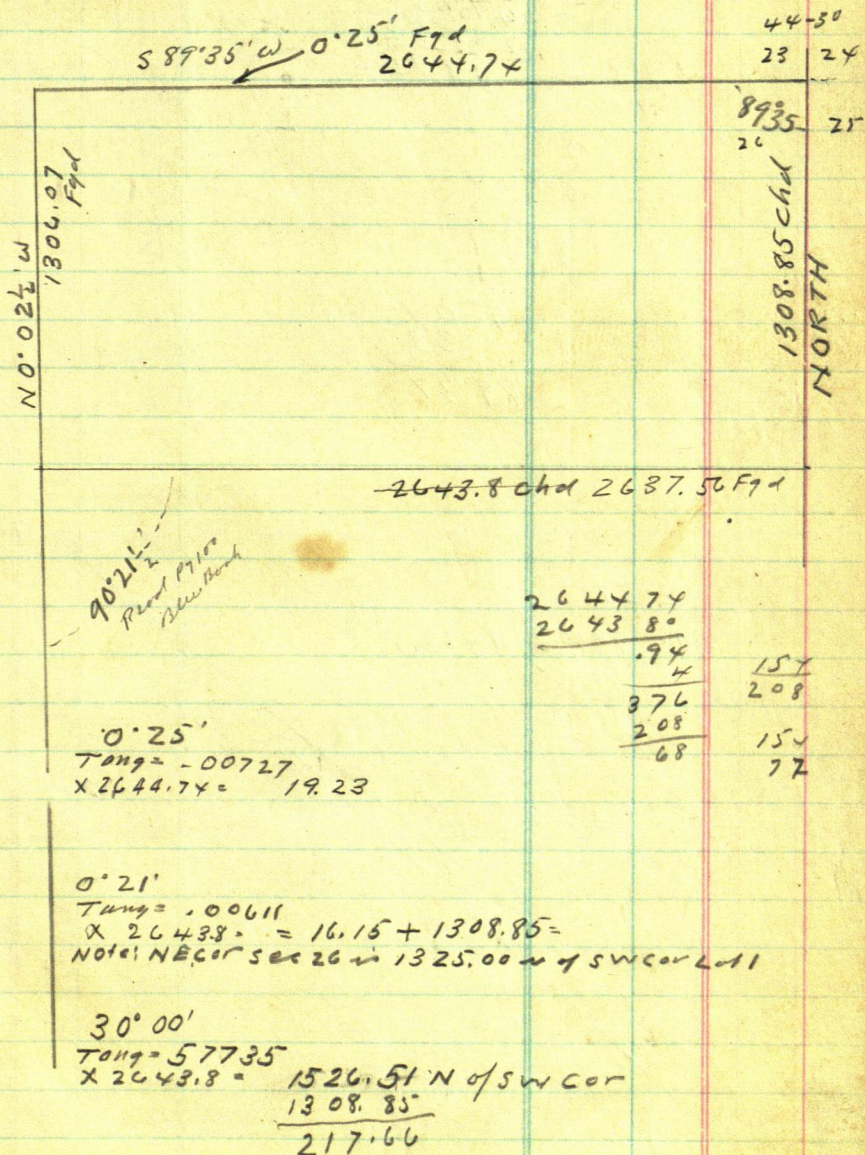 44-30
23 | 24
S 89°35' W 0°25' Fgd
2644.74
89°35
26
25
1306.07
Fgd
N0°02½'W
1308.85 chd
NORTH
2643.8 chd 2637.56 Fgd
90°21½'
Proof Pg 100
Blue Book
2644 74
2643 80
.94
4
376
208
68
154
208
154
77
0°25'
Tang= .00727
X 2644.74= 19.23
0°21'
Tang= .00611
X 2643.8= = 16.15 + 1308.85=
Note: NE Cor Sec 26 is 1325.00 N of SW Cor Lot 1
30°00'
Tang= 57735
X 2643.8= 1526.51 N of SW Cor
1308.85
217.66